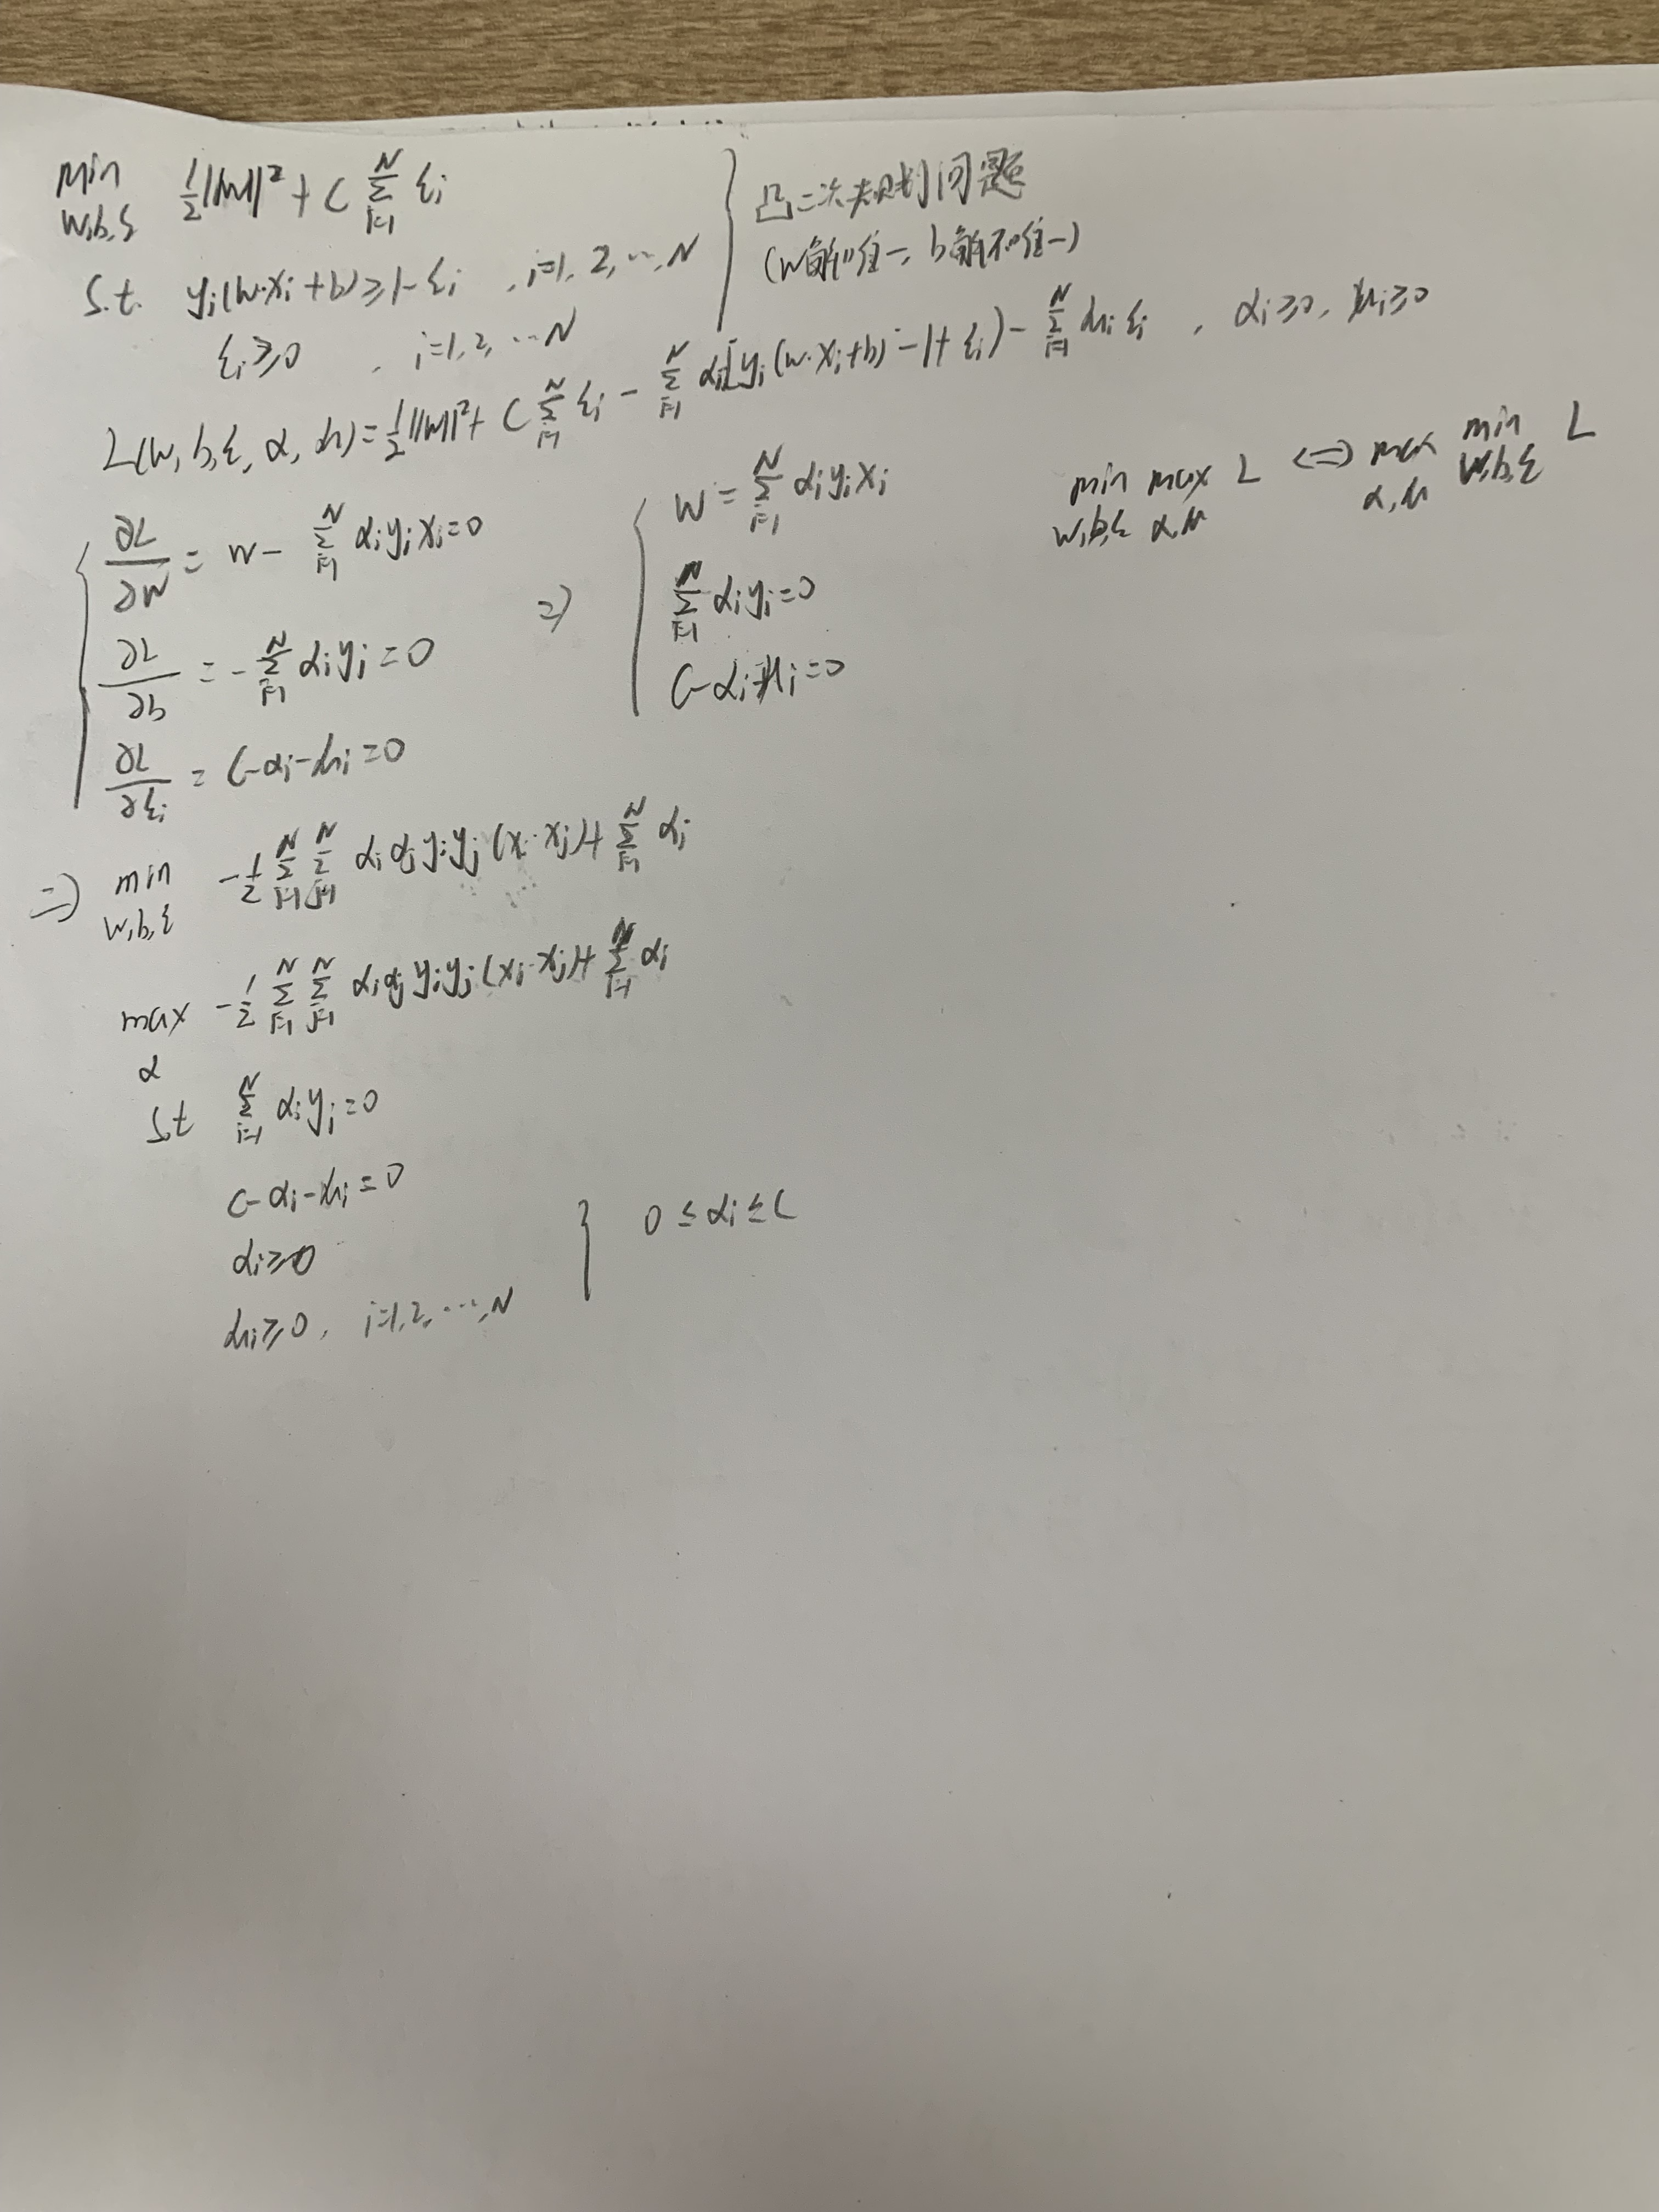 min 1/2||w||² + C Σ_{i=1}^N ξi
w,b,ξ
s.t. yi(w·xi+b)≥1-ξi , i=1, 2, ···, N
ξi≥0 , i=1, 2, ···N
凸二次规划问题
(w解唯一, b解不唯一)
L(w, b, ξ, α, μ)=1/2||w||²+ C Σ_{i=1}^N ξi - Σ_{i=1}^N αi[yi(w·xi+b)-1+ξi) - Σ_{i=1}^N μiξi , αi≥0, μi≥0
min max L <=> max min L
w,b,ξ α,μ α,μ w,b,ξ
∂L/∂w = w - Σ_{i=1}^N αiyixi=0
∂L/∂b = -Σ_{i=1}^N αiyi=0
∂L/∂ξi = C-αi-μi=0
=>
w = Σ_{i=1}^N αiyixi
Σ_{i=1}^N αiyi=0
C-αi-μi=0
=> min -1/2 Σ_{i=1}^N Σ_{j=1}^N αiαjyiyj(xi·xj)+ Σ_{i=1}^N αi
w,b,ξ
max -1/2 Σ_{i=1}^N Σ_{j=1}^N αiαjyiyj(xi·xj)+ Σ_{i=1}^N αi
α
s.t Σ_{i=1}^N αiyi=0
C-αi-μi=0
αi≥0
μi≥0, i=1,2,···,N
0≤αi≤C